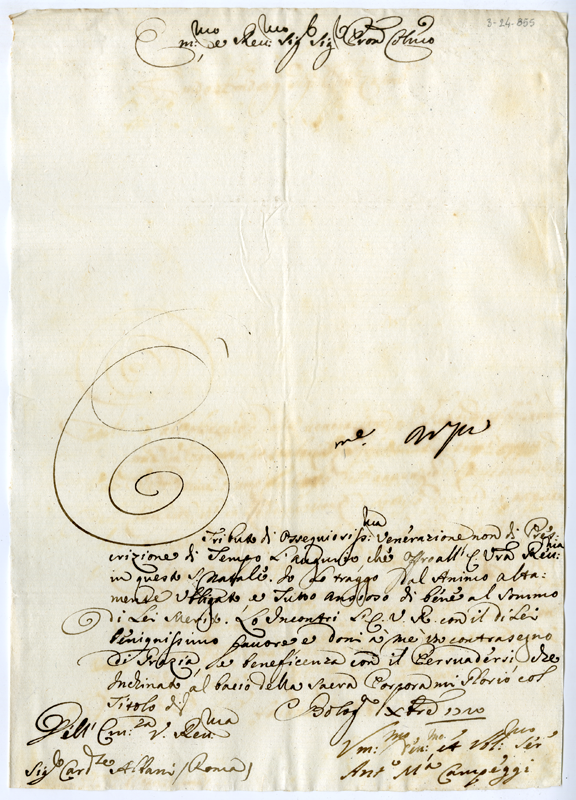 3-24-855
Em:mo e Reu:mo Sig:r Sig:r Pron Colmo
Tributo di Ossequiosiss:ma Venerazione non di Pres=
crizione di Tempo è l'augurio che Offro all' E. Vra Reu:ma
in questo S. Natale. Io lo traggo dal Animo alta=
mente Obligato e Tutto ansioso di bene al Sommo
di Lei Merito. Lo Incontri l'E. V. R. con il di Lei
benignissimo fauore e doni a me in contrasegno
di Grazia e beneficenza con il Persuadersi che
Inchinato al bacio della Sacra Porpora mi Glorio col
Titolo di
Bolog:a Xbre 1710
Dell' Em:za V. Reu:ma
Vm:mo Deu:mo et Obl:mo Ser:e
Sig:r Card:le Albani / Roma /
Ant:o M:a Campeggi